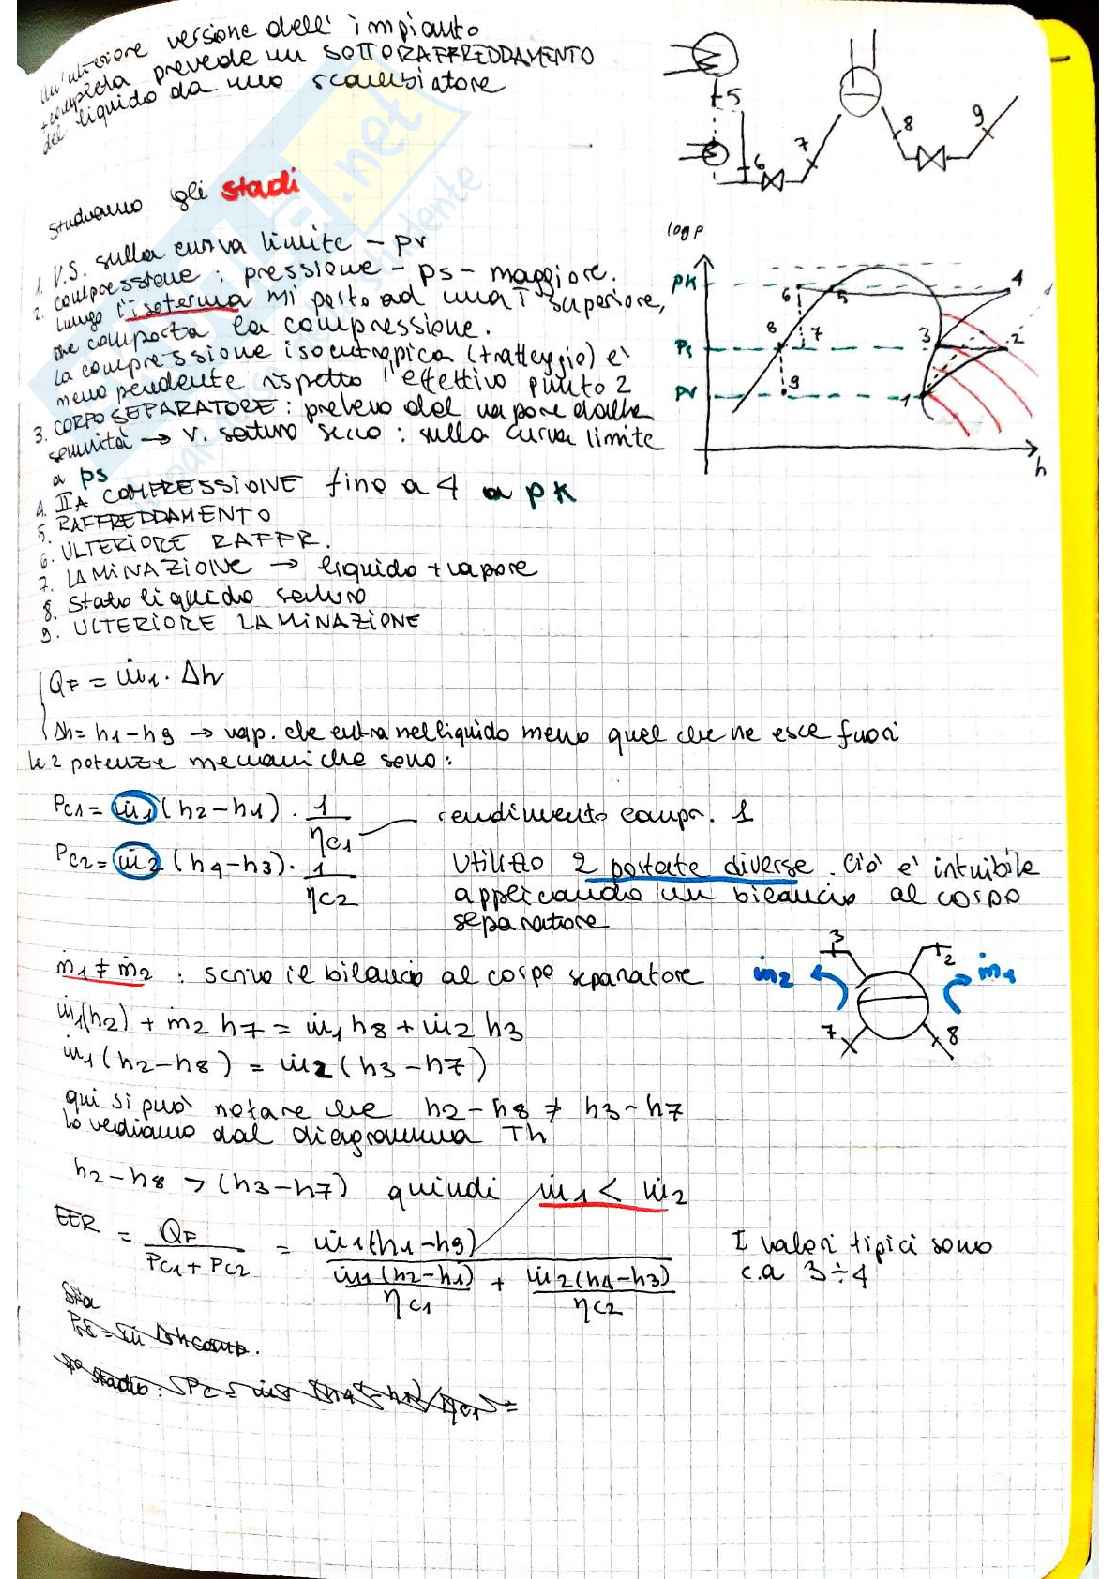 Un'ulteriore versione dell'impianto
+ completa prevede un SOTTORAFFREDDAMENTO
del liquido da uno scambiatore
studiamo gli stadi
1. V.S. sulla curva limite - pv
2. compressione: pressione - ps - maggiore.
Lungo l'isoterma mi porto ad una T superiore,
che comporta la compressione.
La compressione isoentropica (tratteggio) e'
meno pendente rispetto l'effettivo punto 2
3. CORPO SEPARATORE: prelevo del vapore dalle
sommità → v. saturo secco: sulla curva limite
a ps
4. IIA COMPRESSIONE fino a 4 a pk
5. RAFFREDDAMENTO
6. ULTERIORE RAFFR.
7. LAMINAZIONE → liquido + vapore
8. Stato liquido saturo
9. ULTERIORE LAMINAZIONE
5
6
7
8
9
log p
pk
ps
pv
6
5
4
8
7
3
2
9
1
h
QF = ṁ1 · Δh
Δh = h1 - h9 → vap. che entra nel liquido meno quel che ne esce fuori
le 2 potenze meccaniche sono:
Pc1 = ṁ1 (h2 - h1) · 1/ηc1 rendimento compr. 1
Pc2 = ṁ2 (h4 - h3) · 1/ηc2
Utilizzo 2 portate diverse. Ciò e' intuibile
applicando un bilancio al corpo
separatore
ṁ1 ≠ ṁ2 : scrivo il bilancio al corpo separatore
3
2
ṁ2
ṁ1
7
8
ṁ1(h2) + ṁ2 h7 = ṁ1 h8 + ṁ2 h3
ṁ1 (h2 - h8) = ṁ2 (h3 - h7)
qui si può notare che h2 - h8 ≠ h3 - h7
lo vediamo dal diagramma Th
h2 - h8 > (h3 - h7) quindi ṁ1 < ṁ2
EER = QF / (Pc1 + Pc2) = ṁ1(h1 - h9) / (ṁ1(h2 - h1)/ηc1 + ṁ2(h4 - h3)/ηc2)
I valori tipici sono
c.a 3÷4